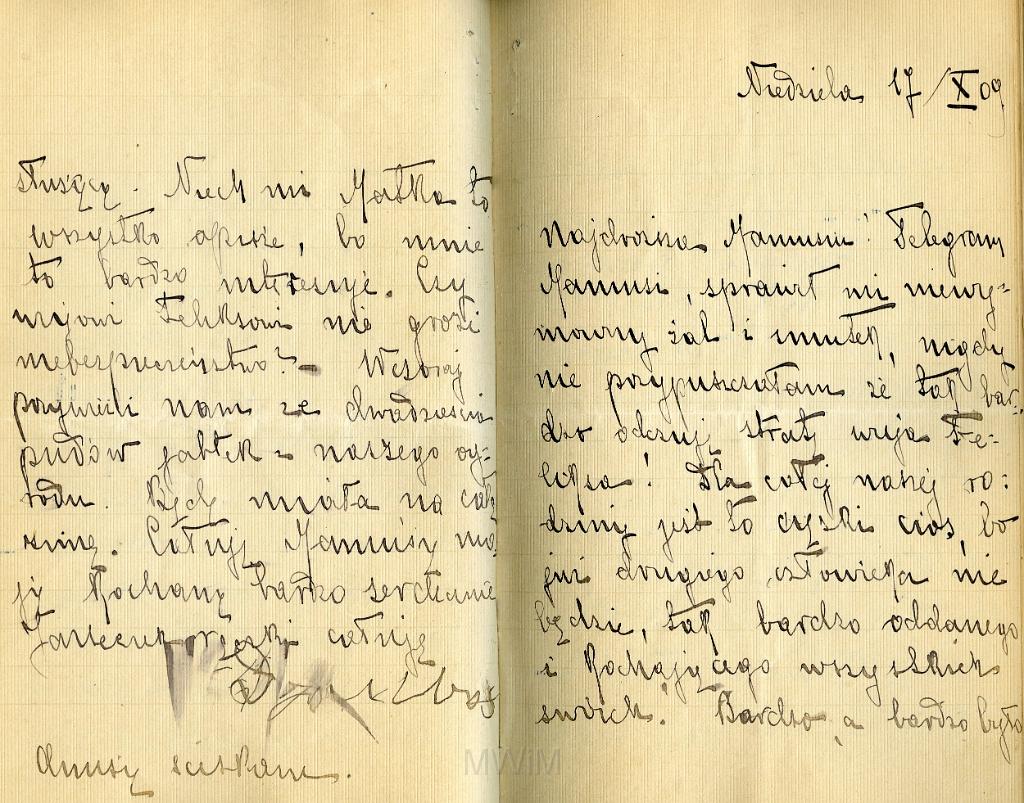 Niedziela 17/X 09
Najdroższa Mamusiu! Telegram
Mamusi, sprawił mi niewy-
mowny żal i smutek, nigdy
nie przypuszczałam że tak bar-
dzo odczuję stratę wuja Fe-
liksa! Dla całej naszej ro-
dziny jest to ciężki cios, bo
już drugiego człowieka nie
będzie, tak bardzo oddanego
i kochającego wszystkich
swoich. Bardzo, a bardzo było
służący. Niech mi Matka to
wszystko opisze, bo mnie
to bardzo interesuje. Czy
wujowi Feliksowi nie grozi
niebezpieczeństwo? - Wczoraj
przywieźli nam ze dwadzieścia
pudów jabłek z naszego og-
rodu. Będę miała na całą
zimę. Całuję Mamusię mo-
ją kochaną bardzo serdecznie
rączki całuję
Anusię ściskam.
MWiM